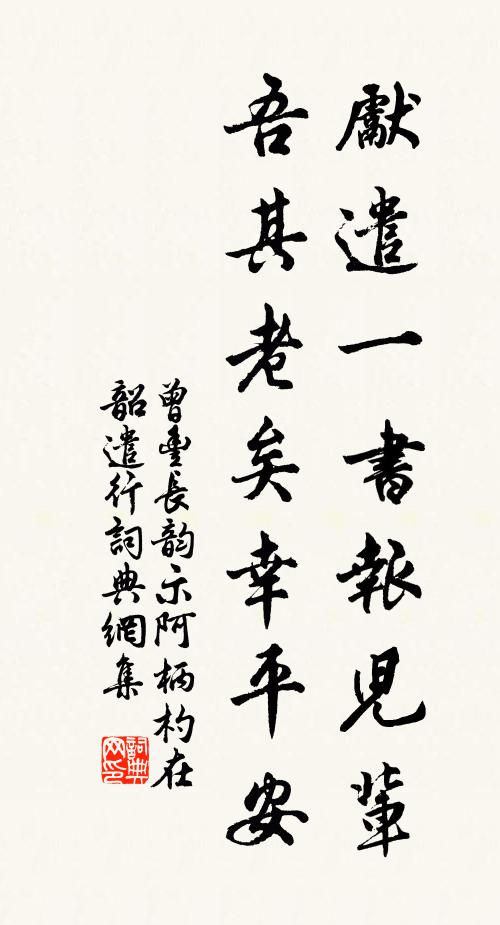 獻遣一書報兒輩
吾其老矣幸平安
曾豐長韵示阿柄杓在
韶遣行詞典網集
詞典网印